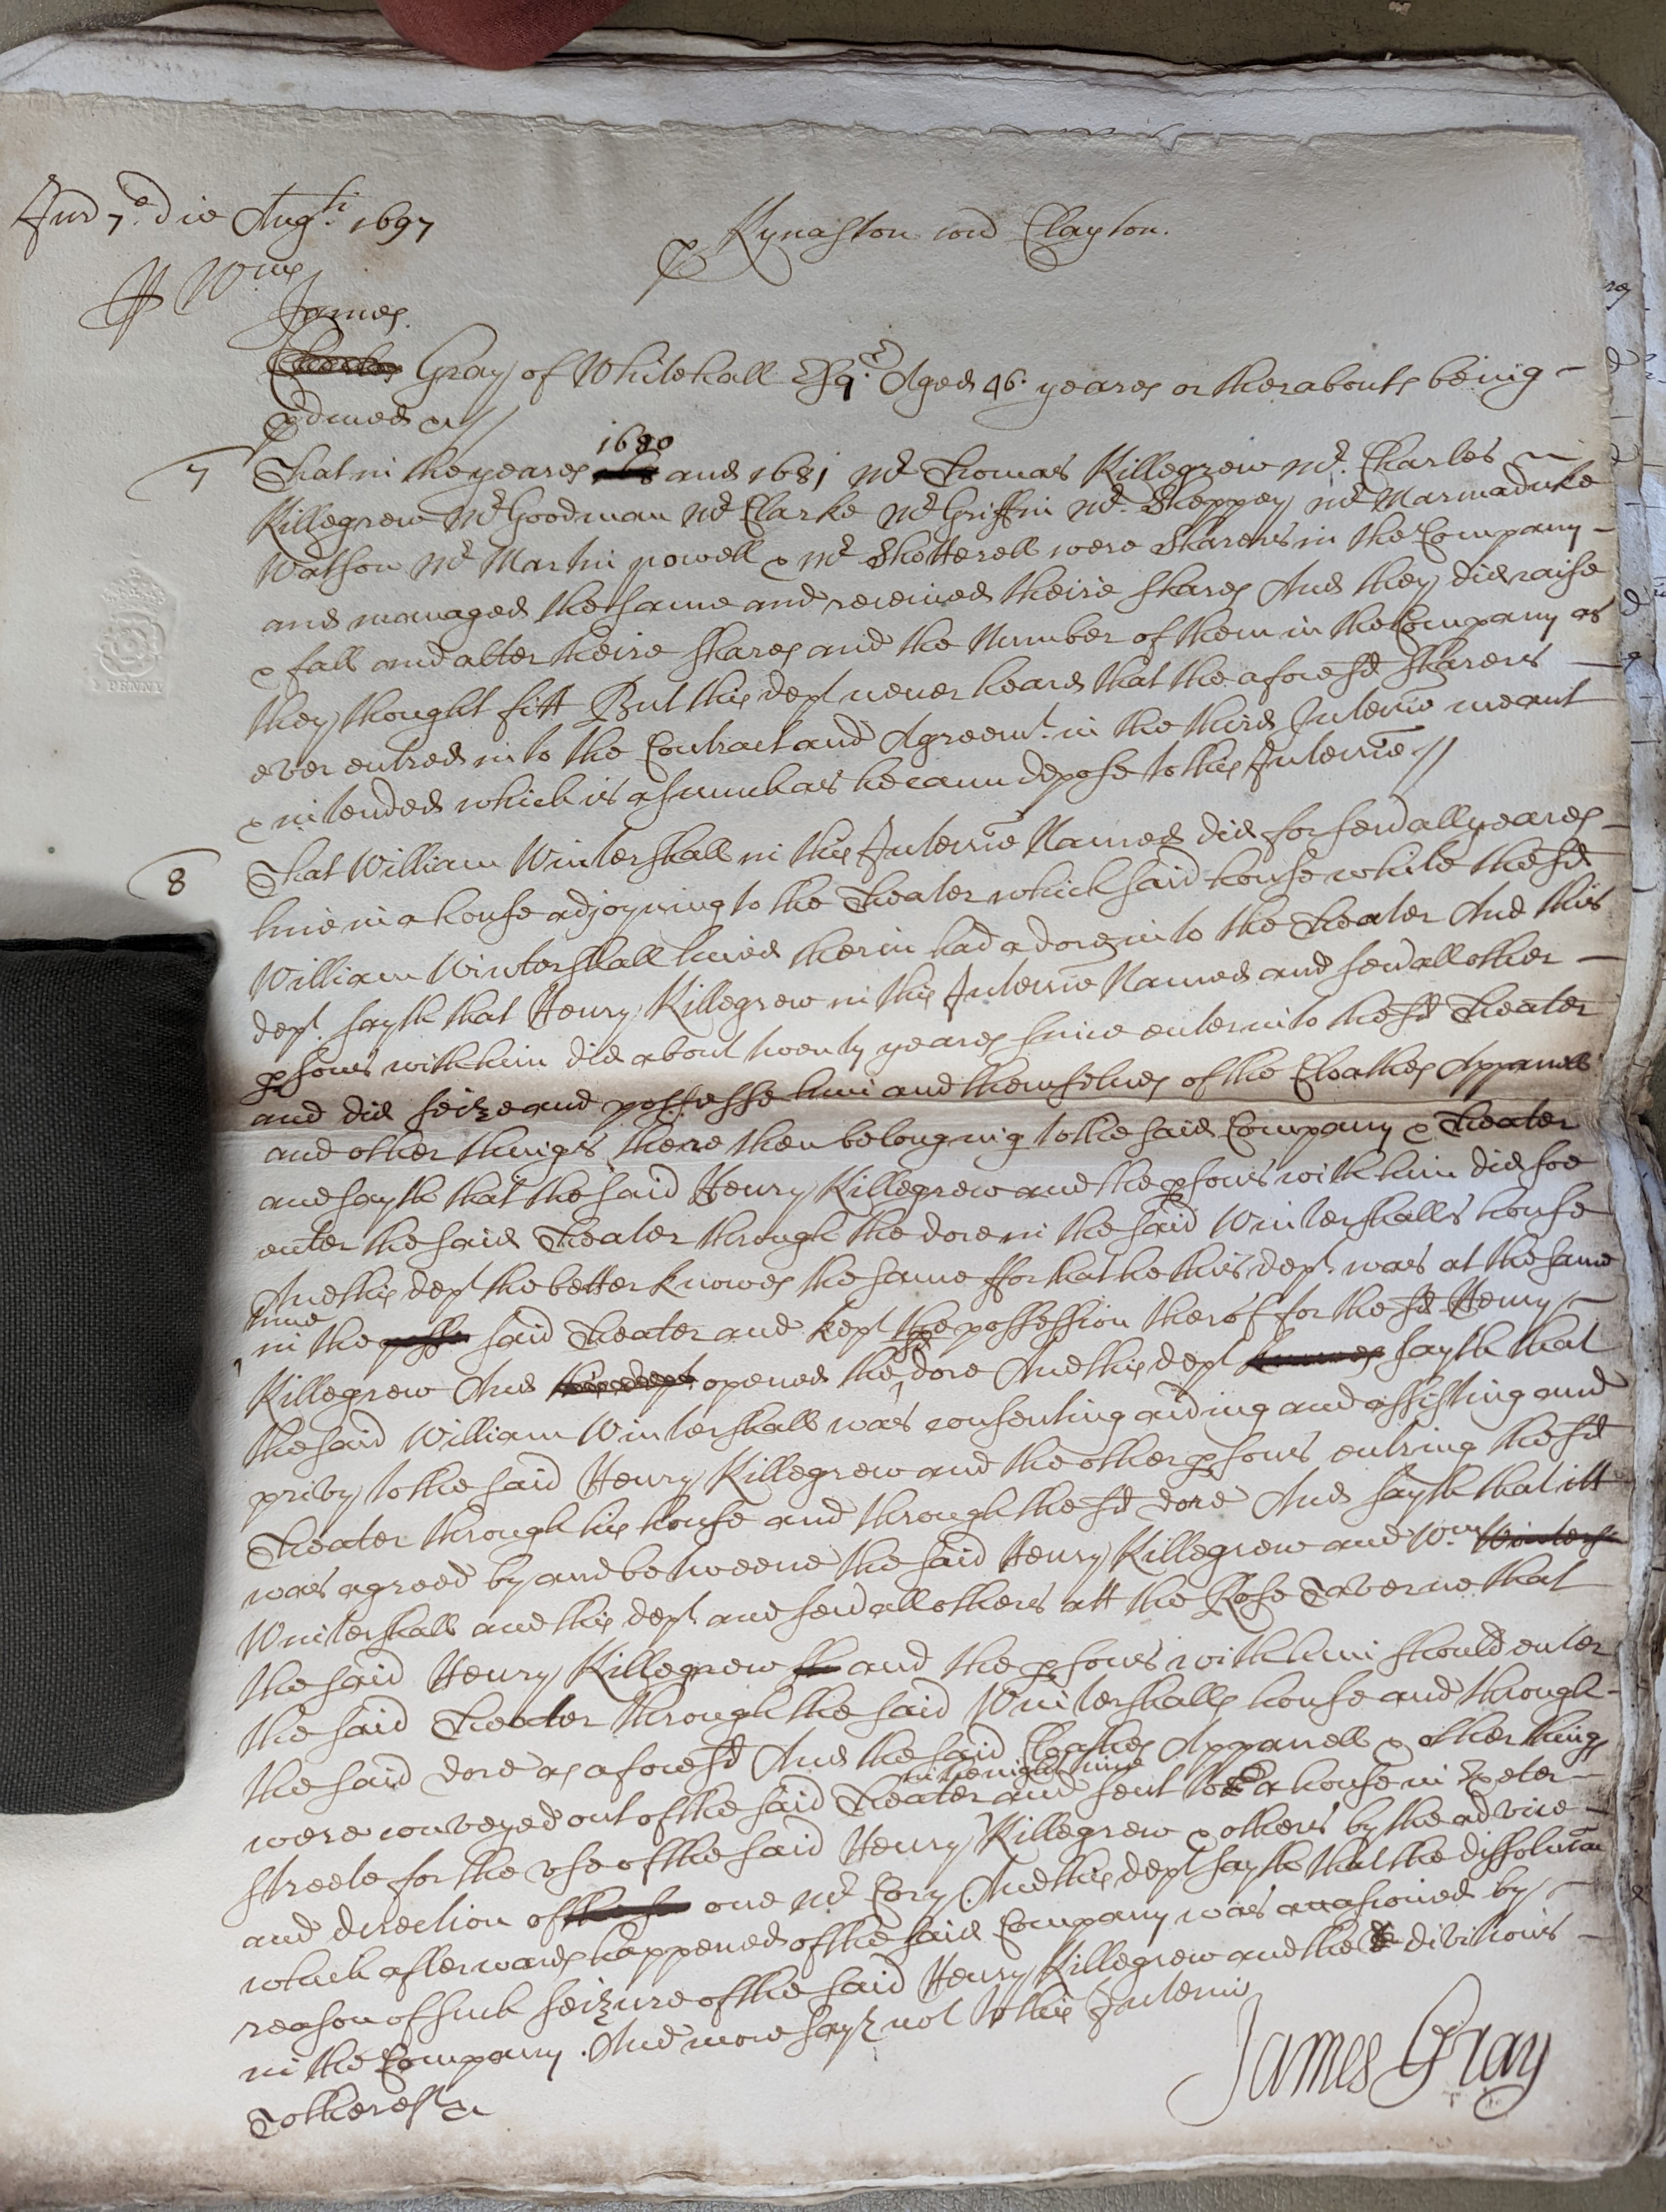 Jur 7o. die Augti. 1697
p Kynaston con Clayton.
Wms
James
Charles Gray of Whitehall Esqr. Aged 46. yeares or therabouts being
pduced &c
7 That in the yeares 1680 and 1681 Mr Thomas Killegrew Mr. Charles
Killegrew Mr Goodman Mr Clarke Mr Griffin Mr. Sheppey Mr Marmaduke
Watson Mr Martin powell & Mr Shotterell were Sharers in the Company
and managed the same and received theire shares And they did raise
& fall and alter theire shares and the Number of them in the Company as
they thought fitt But this dept never heard that the aforesd sharers
ever entred into the Contract and Agreemt. in the third Interrie meant
& intended which is as much as he cann depose to this Interrie
8 That William Wintershall in this Interrie Named did for severall yeares
live in a house adjoyning to the Theater which said house while the sd
William Wintershall lived therin had a dore into the Theater And this
dept. sayth that Henry Killegrew in this Interrie Named and severall other
psons with him did about twenty yeares since enter into the sd Theater
and did seize and possesse him and themselves of the Cloathes Apparell
and other things there then belonging to the said Company & Theater
and sayth that the said Henry Killegrew and the psons with him did soe
enter the said Theater through the dore in the said Wintershalls house
And this dept the better knowes the same ffor that he this dept was at the same
time
in the said Theater and kept the possession therof for the sd Henry
Killegrew And this dept opened the sd dore And this dept knowes sayth that
the said William Wintershall was consenting aiding and assisting and
privy to the said Henry Killegrew and the other psons entring the sd
Theater through his house and through the sd dore And sayth that itt
was agreed by and betweene the said Henry Killegrew and Wm. Wintersh
Wintershall and this dept. and severall others att the Rose Taverne that
the said Henry Killegrew sh and the psons with him should enter
the said Theater through the said Wintershalls house and through
the said dore as aforesd And the said Cloathes Apparell & other things
in the night time
were conveyed out of the said Theater and sent to a house in Exeter
streete for the use of the said Henry Killegrew & others by the advice
and direction of one Mr Cory. And this dept sayth that the dissolucon
which afterwards happened of the said Company was occasioned by
reason of such seizure of the said Henry Killegrew and the divitions
in the Company. And more says not to this Interrie
To the rest &c
James Gray
PENNY